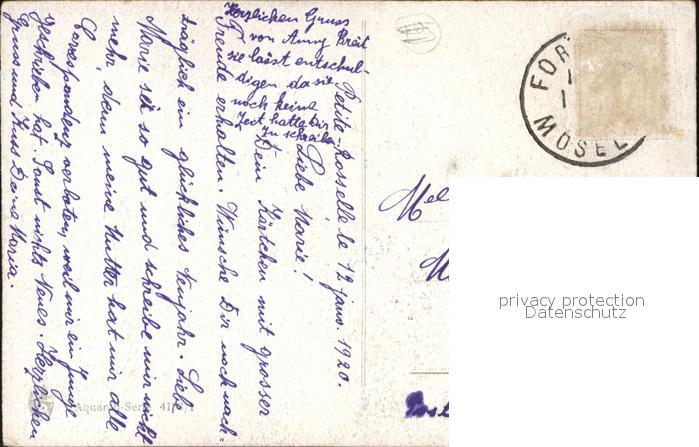 Petite-Rosselle le 12 janv. 1920.
Liebe Marie!
Dein Kärtchen mit grosser
Freude erhalten. Wünsche Dir nach-
träglich ein glückliches Neujahr. Liebe
Marie sei so gut und schreibe mir nicht
mehr, denn meine Mutter hat mir alle
Correspondenz verboten, weil mir ein Junge
geschrieben hat. Sonst nichts Neues. Herzlichen
Gruss und Kuss Deine Maria.
Herzlichen Gruss
von Anny Breit
sie lässt entschul-
digen da sie
noch keine
Zeit hatte Dir
zu schreiben
FOR
MOSEL
Mel
Post
Aquarell-Serie 41
privacy protection
Datenschutz